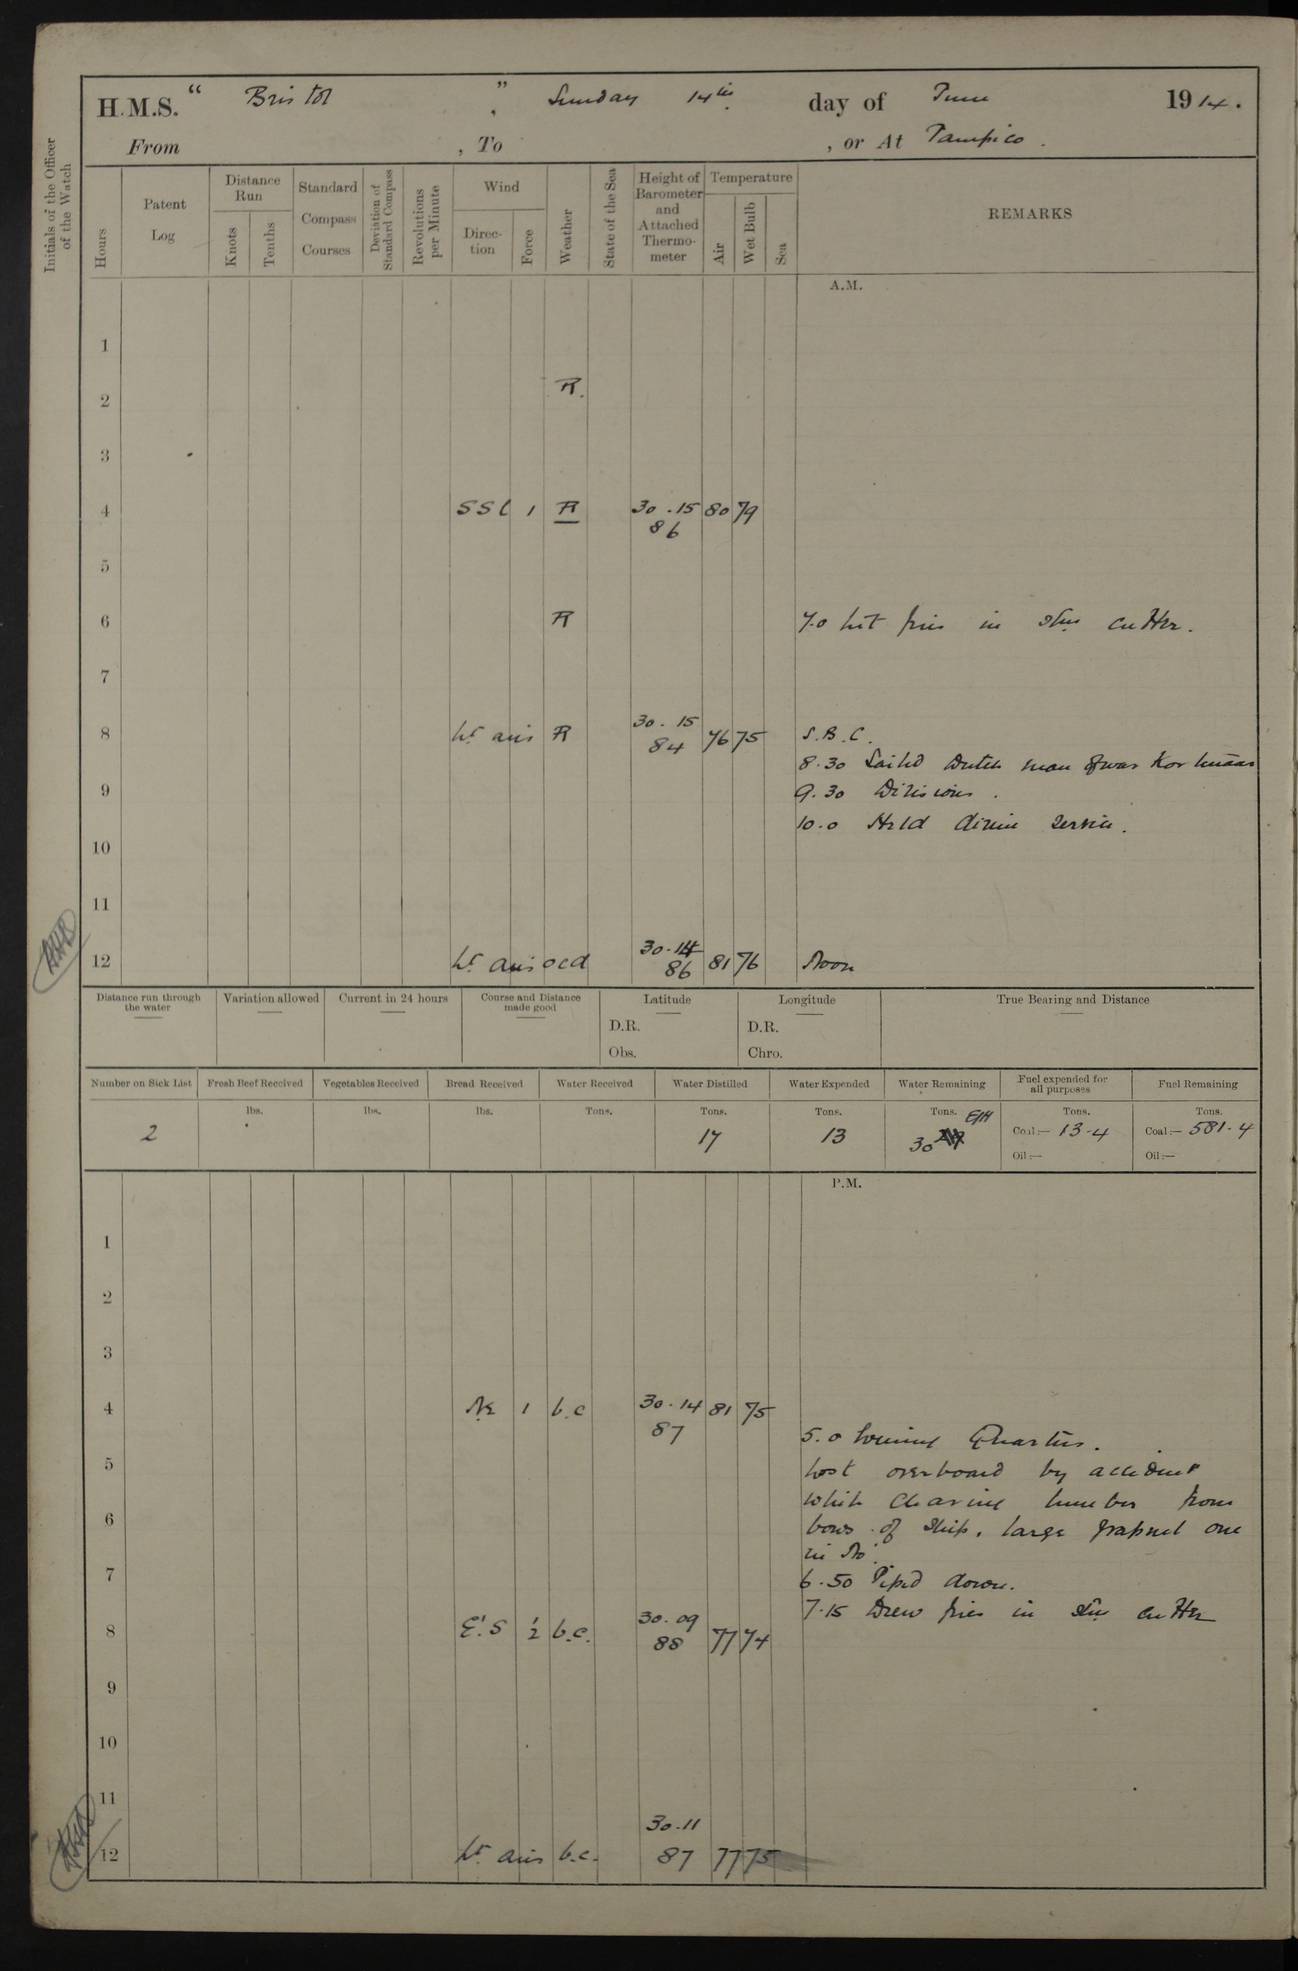 H.M.S. " Bristol ", Sunday 14th day of June 1914.
From , To , or At Tampico.
Initials of the Officer of the Watch
Hours
Patent Log
Distance Run
Knots
Tenths
Standard Compass Courses
Deviation of Standard Compass
Revolutions per Minute
Wind
Direction
Force
Weather
State of the Sea
Height of Barometer and Attached Thermometer
Temperature
Air
Wet Bulb
Sea
REMARKS
A.M.
1
2 R.
3
4 SSE 1 R 30.15 86 80 79
5
6 R 7.0 Lit fires in stm cutter.
7
8 Lt airs R 30.15 84 76 75 S.B.C.
8.30 Sailed Dutch man of war
9 9.30 Divisions.
10.0 Held divine service.
10
11
12 Lt airs ocd 30.14 86 81 76 Noon
Distance run through the water
Variation allowed
Current in 24 hours
Course and Distance made good
Latitude
D.R.
Obs.
Longitude
D.R.
Chro.
True Bearing and Distance
Number on Sick List
2
Fresh Beef Received
lbs.
Vegetables Received
lbs.
Bread Received
lbs.
Water Received
Tons.
Water Distilled
Tons.
17
Water Expended
Tons.
13
Water Remaining
Tons.
30
Fuel expended for all purposes
Tons.
Coal:— 13.4
Oil:—
Fuel Remaining
Tons.
Coal:— 581.4
Oil:—
P.M.
1
2
3
4 NE 1 b.c 30.14 87 81 75
5.0 Evening Quarters.
5 Lost overboard by accident
while clearing lumber from
6 bows of ship, large grapnel one
in No.
7 6.50 Piped down.
7.15 Drew fires in stm cutter
8 E'S ½ b.c. 30.09 88 77 74
9
10
11
12 Lt airs b.c. 30.11 87 77 75